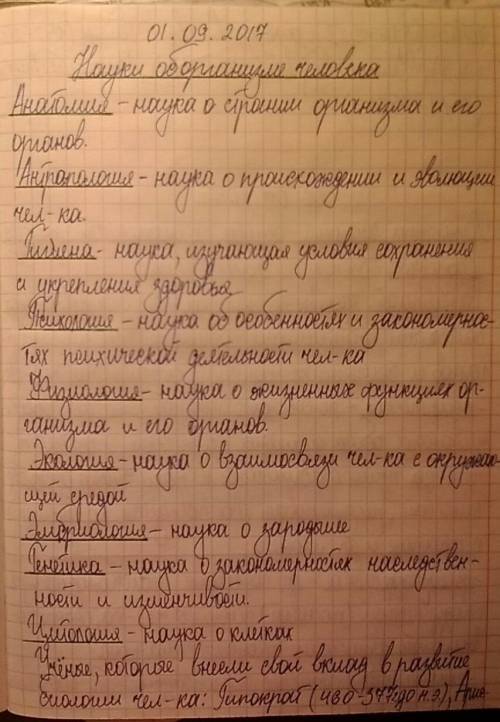 01.09.2017
Науки об организме человека
Анатомия - наука о стронии организма и его
органов.
Антропология - наука о происхождении и эволюции
чел-ка.
Гигиена - наука, изучающая условия сохранения
и укрепления здоровья
Психология - наука об особенностях и закономернос-
тях психической деятельности чел-ка
Физиология - наука о жизненных функциях ор-
ганизма и его органов.
Экология - наука о взаимосвязи чел-ка с окружаю-
щей средой
Эмбриология - наука о зародыше
Генетика - наука о закономерностях наследствен-
ности и изменчивости.
Цитология - наука о клетках
Учёные, которые внесли свой вклад в развитие
биологии чел-ка: Гипократ (460-377 до н.э),